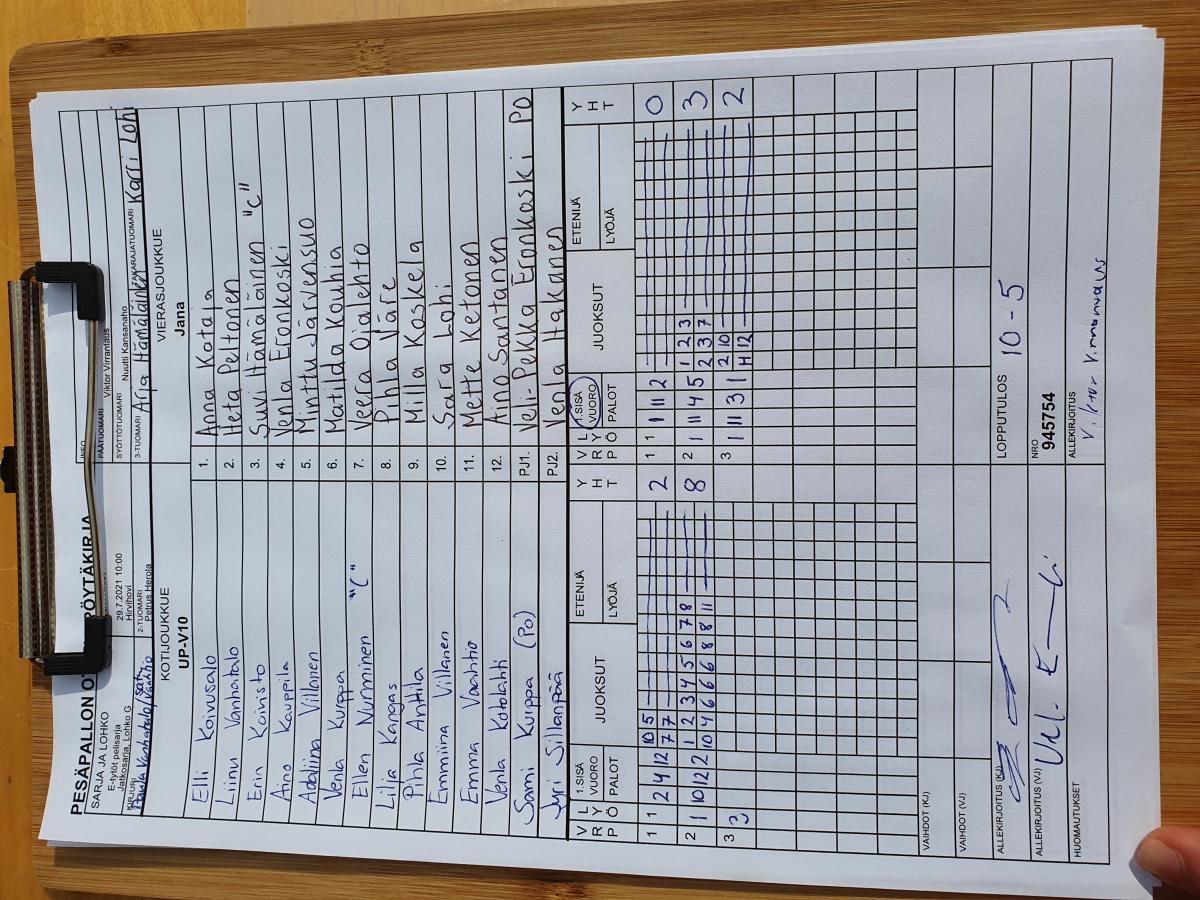 PESÄPALLON OTTELUPÖYTÄKIRJA
SARJA JA LOHKO
E-tytöt pelisarja
Jatkosarja, Lohko G
29.7.2021 10:00
Hirvihovi
INFO
PÄÄTUOMARI Viktor Virrantaus
SYÖTTÖTUOMARI Nuutti Kansanaho
KIRJURI
2-TUOMARI
Petrus Herola
3-TUOMARI Arja Hämäläinen
TAKARAJATUOMARI Karri Loh
KOTIJOUKKUE
UP-V10
VIERASJOUKKUE
Jana
Elli Koivusalo
1. Anna Katala
Liinu Vanhatalo
2. Heta Peltonen
Erin Koivisto
3. Suvi Hämäläinen "C"
Aino Kauppila
4. Venla Eronkoski
Adaliina Villanen
5. Minttu Järvensuo
Venla Kuippa
6. Matilda Kouhia
Ellen Nurminen "C"
7. Veera Ojalehto
Lilja Kangas
8. Pihla Väre
Pihla Anttila
9. Milla Koskela
Emmiina Villanen
10. Sara Lohi
Emma Vaahtio
11. Mette Ketonen
Venla Katalahti
12. Aino Santanen
Sami Kuippa (Po)
PJ1. Veli-Pekka Eronkoski PO
Jyri Sillanpää
PJ2. Venla Hakanen
V R P
L Y Ö
1.SISÄ VUORO
PALOT
JUOKSUT
ETENIJÄ
LYÖJÄ
Y H T
V R P
L Y Ö
1.SISÄ VUORO
PALOT
JUOKSUT
ETENIJÄ
LYÖJÄ
Y H T
1 1 2 4 12 10 5 2
7 7
1 1 1 11 2 0
2 1 10 12 2 1 2 3 4 5 6 7 8 8
10 4 6 6 6 8 8 11
2 1 11 4 5 1 2 3 3
2 3 7
3 3
3 1 11 3 1 2 10 2
H 12
VAIHDOT (KJ)
VAIHDOT (VJ)
ALLEKIRJOITUS (KJ)
LOPPUTULOS 10-5
ALLEKIRJOITUS (VJ)
NRO
945754
HUOMAUTUKSET
ALLEKIRJOITUS